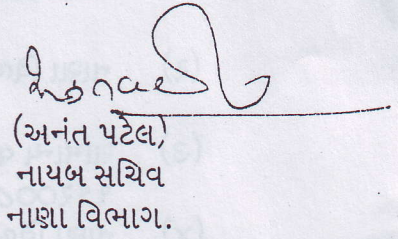 (અનંત પટેલ)
નાયબ સચિવ
નાણા વિભાગ.